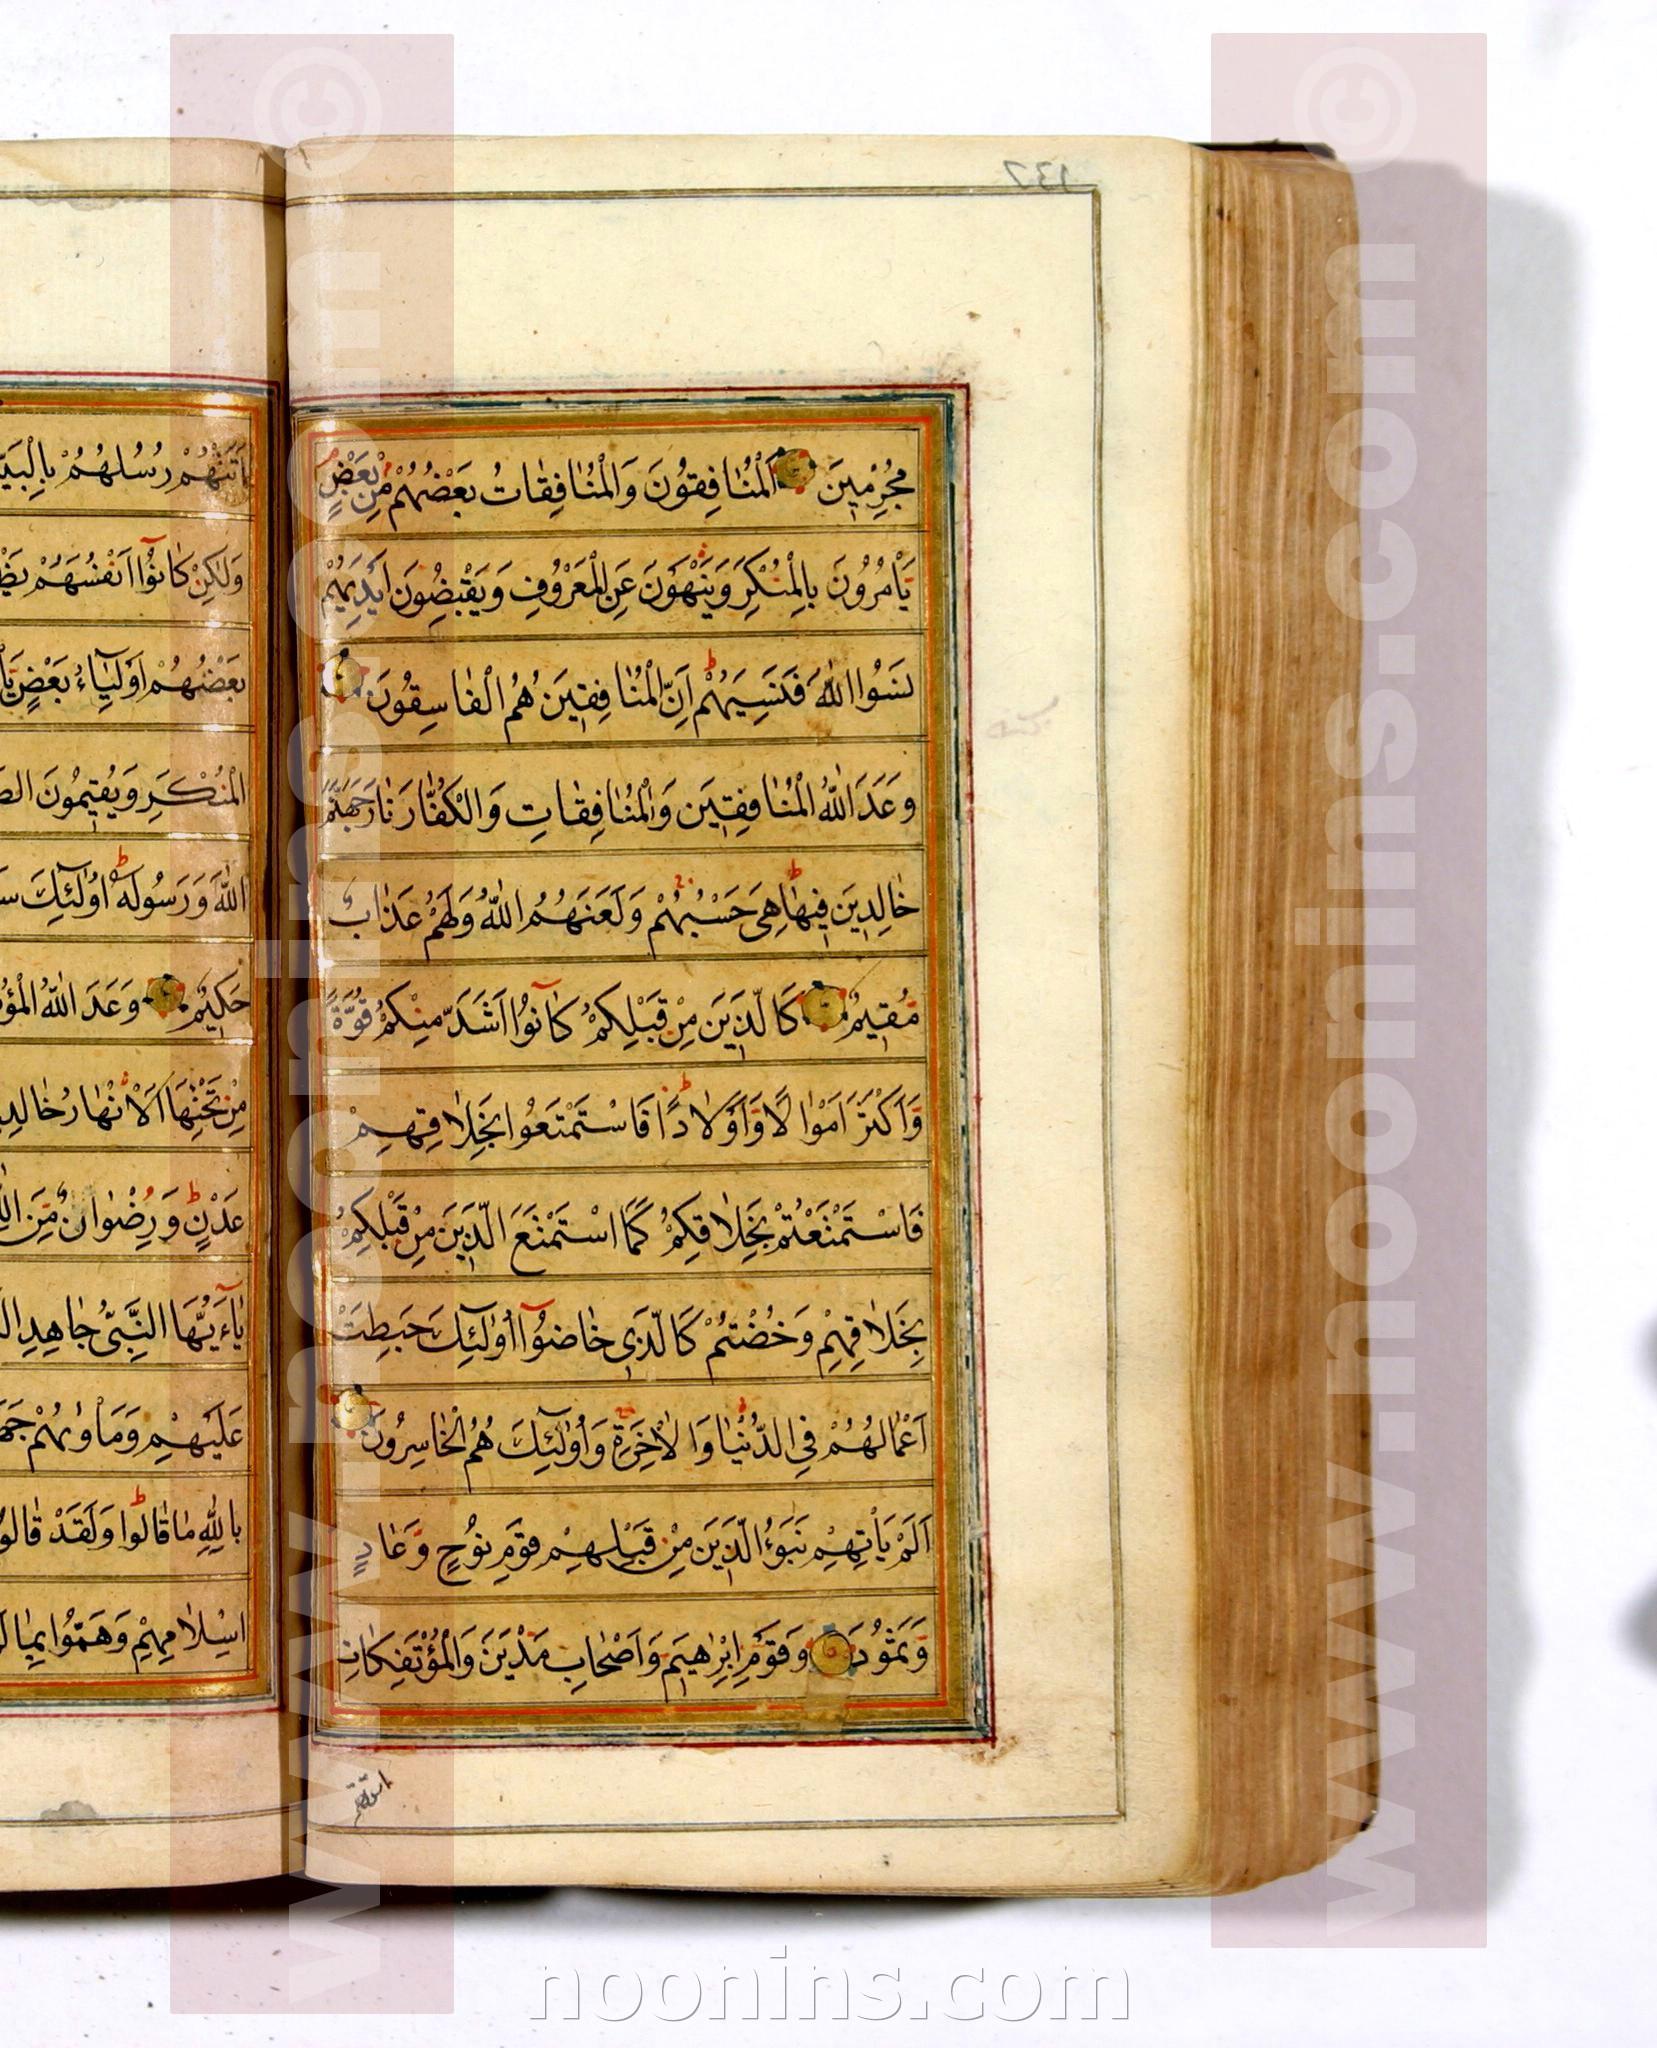 مُجْرِمِينَ اَلْمُنَافِقُونَ وَالْمُنَافِقَاتُ بَعْضُهُمْ مِنْ بَعْضٍ
يَأْمُرُونَ بِالْمُنْكَرِ وَيَنْهَوْنَ عَنِ الْمَعْرُوفِ وَيَقْبِضُونَ اَيْدِيَهُمْ
نَسُوا اللّٰهَ فَنَسِيَهُمْ ط اِنَّ الْمُنَافِقِينَ هُمُ الْفَاسِقُونَ
وَعَدَ اللّٰهُ الْمُنَافِقِينَ وَالْمُنَافِقَاتِ وَالْكُفَّارَ نَارَ جَهَنَّمَ
خَالِدِينَ فِيهَا ط هِيَ حَسْبُهُمْ ج وَلَعَنَهُمُ اللّٰهُ وَلَهُمْ عَذَابٌ
مُقِيمٌ كَالَّذِينَ مِنْ قَبْلِكُمْ كَانُوٓا اَشَدَّ مِنْكُمْ قُوَّةً
وَاَكْثَرَ اَمْوَالًا وَاَوْلَادًا ط فَاسْتَمْتَعُوا بِخَلَاقِهِمْ
فَاسْتَمْتَعْتُمْ بِخَلَاقِكُمْ كَمَا اسْتَمْتَعَ الَّذِينَ مِنْ قَبْلِكُمْ
بِخَلَاقِهِمْ وَخُضْتُمْ كَالَّذِي خَاضُوٓا اُولٰٓئِكَ حَبِطَتْ
اَعْمَالُهُمْ فِي الدُّنْيَا وَالْاٰخِرَةِ ج وَاُولٰٓئِكَ هُمُ الْخَاسِرُونَ
اَلَمْ يَأْتِهِمْ نَبَؤُا الَّذِينَ مِنْ قَبْلِهِمْ قَوْمِ نُوحٍ وَعَادٍ
وَثَمُودَ وَقَوْمِ اِبْرٰهِيمَ وَاَصْحَابِ مَدْيَنَ وَالْمُؤْتَفِكَاتِ
اَتَتْهُمْ
اَتَتْهُمْ رُسُلُهُمْ
وَلٰكِنْ كَانُوٓا اَنْفُسَهُمْ
بَعْضُهُمْ اَوْلِيَآءُ بَعْضٍ
الْمُنْكَرِ وَيُقِيمُونَ
اللّٰهَ وَرَسُولَهُ ط اُولٰٓئِكَ
حَكِيمٌ وَعَدَ اللّٰهُ
مِنْ تَحْتِهَا الْاَنْهَارُ
عَدْنٍ ط وَرِضْوَانٌ مِنَ
يَآ اَيُّهَا النَّبِيُّ جَاهِدِ
عَلَيْهِمْ وَمَأْوٰيهُمْ
بِاللّٰهِ مَا قَالُوا ط وَلَقَدْ
اِسْلَامِهِمْ وَهَمُّوا بِمَا
© www.noonins.com
© www.noonins.com
noonins.com